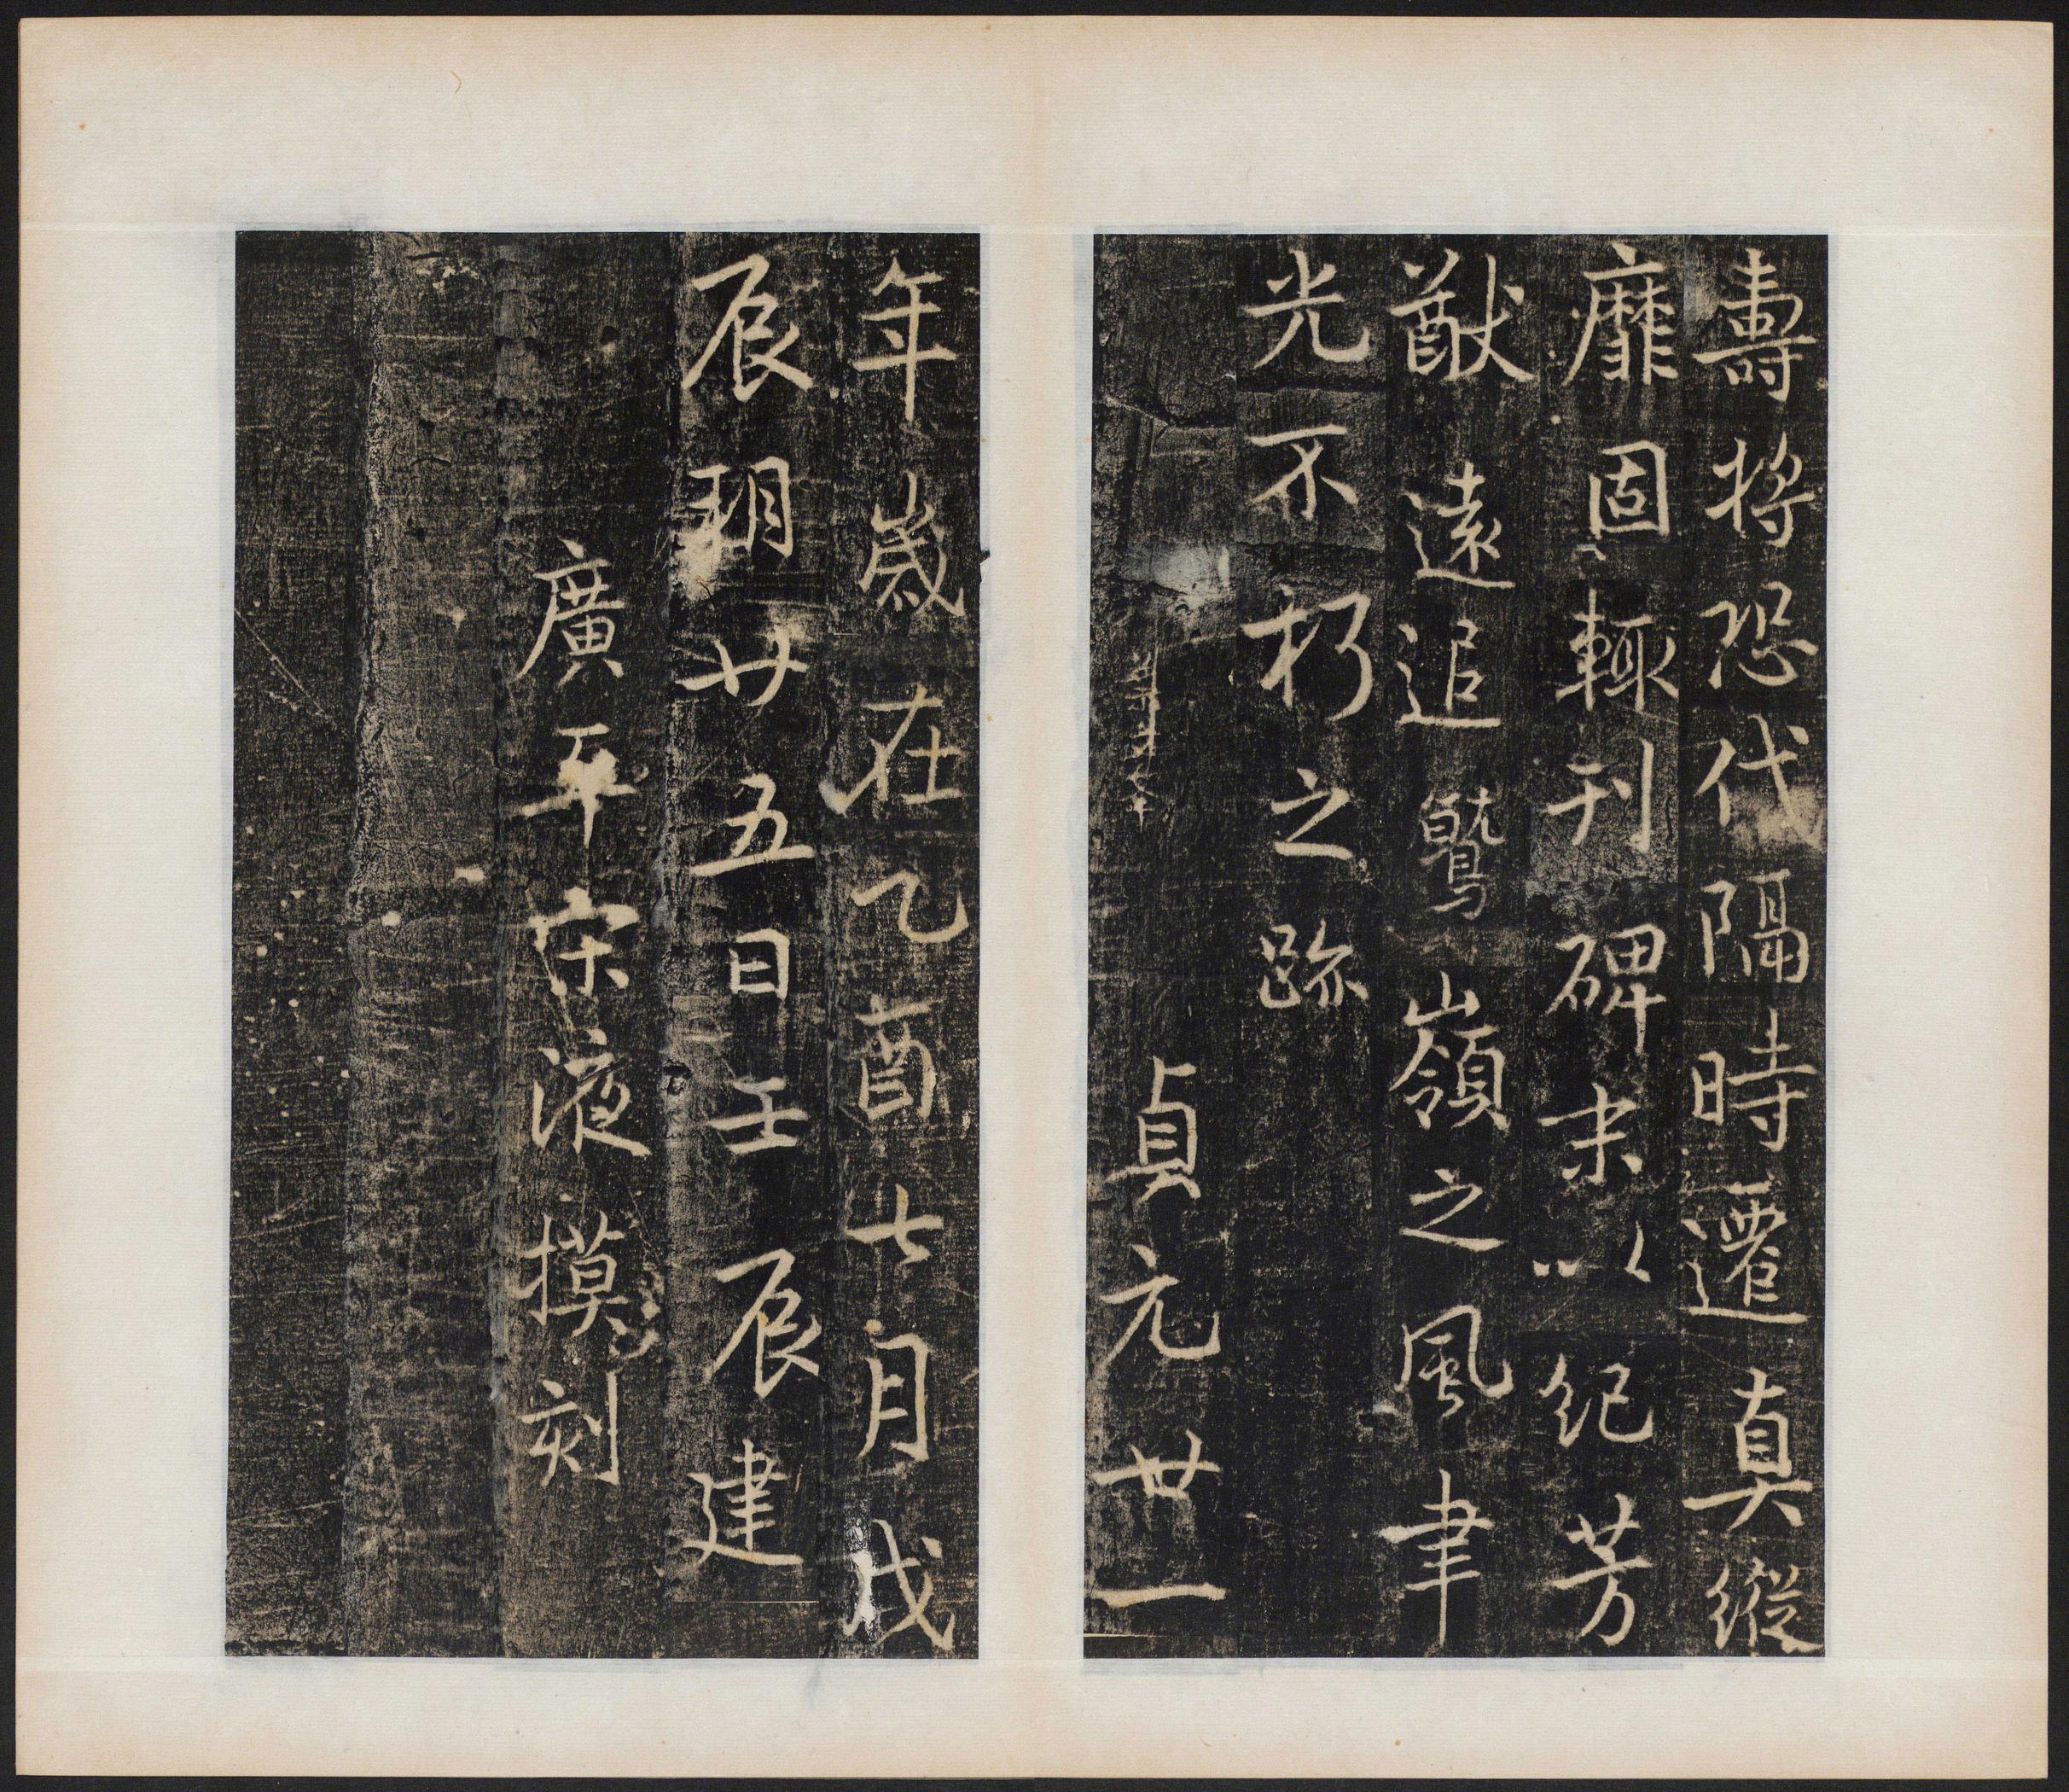 壽將恐代隔時遷真縱
靡固輙刊碑耒以紀芳
猷遠追鷲嶺之風聿
光不朽之跡
貞元廿一
年歲在乙酉七月戊
辰朔廿五日壬辰建
廣平宋液摸刻